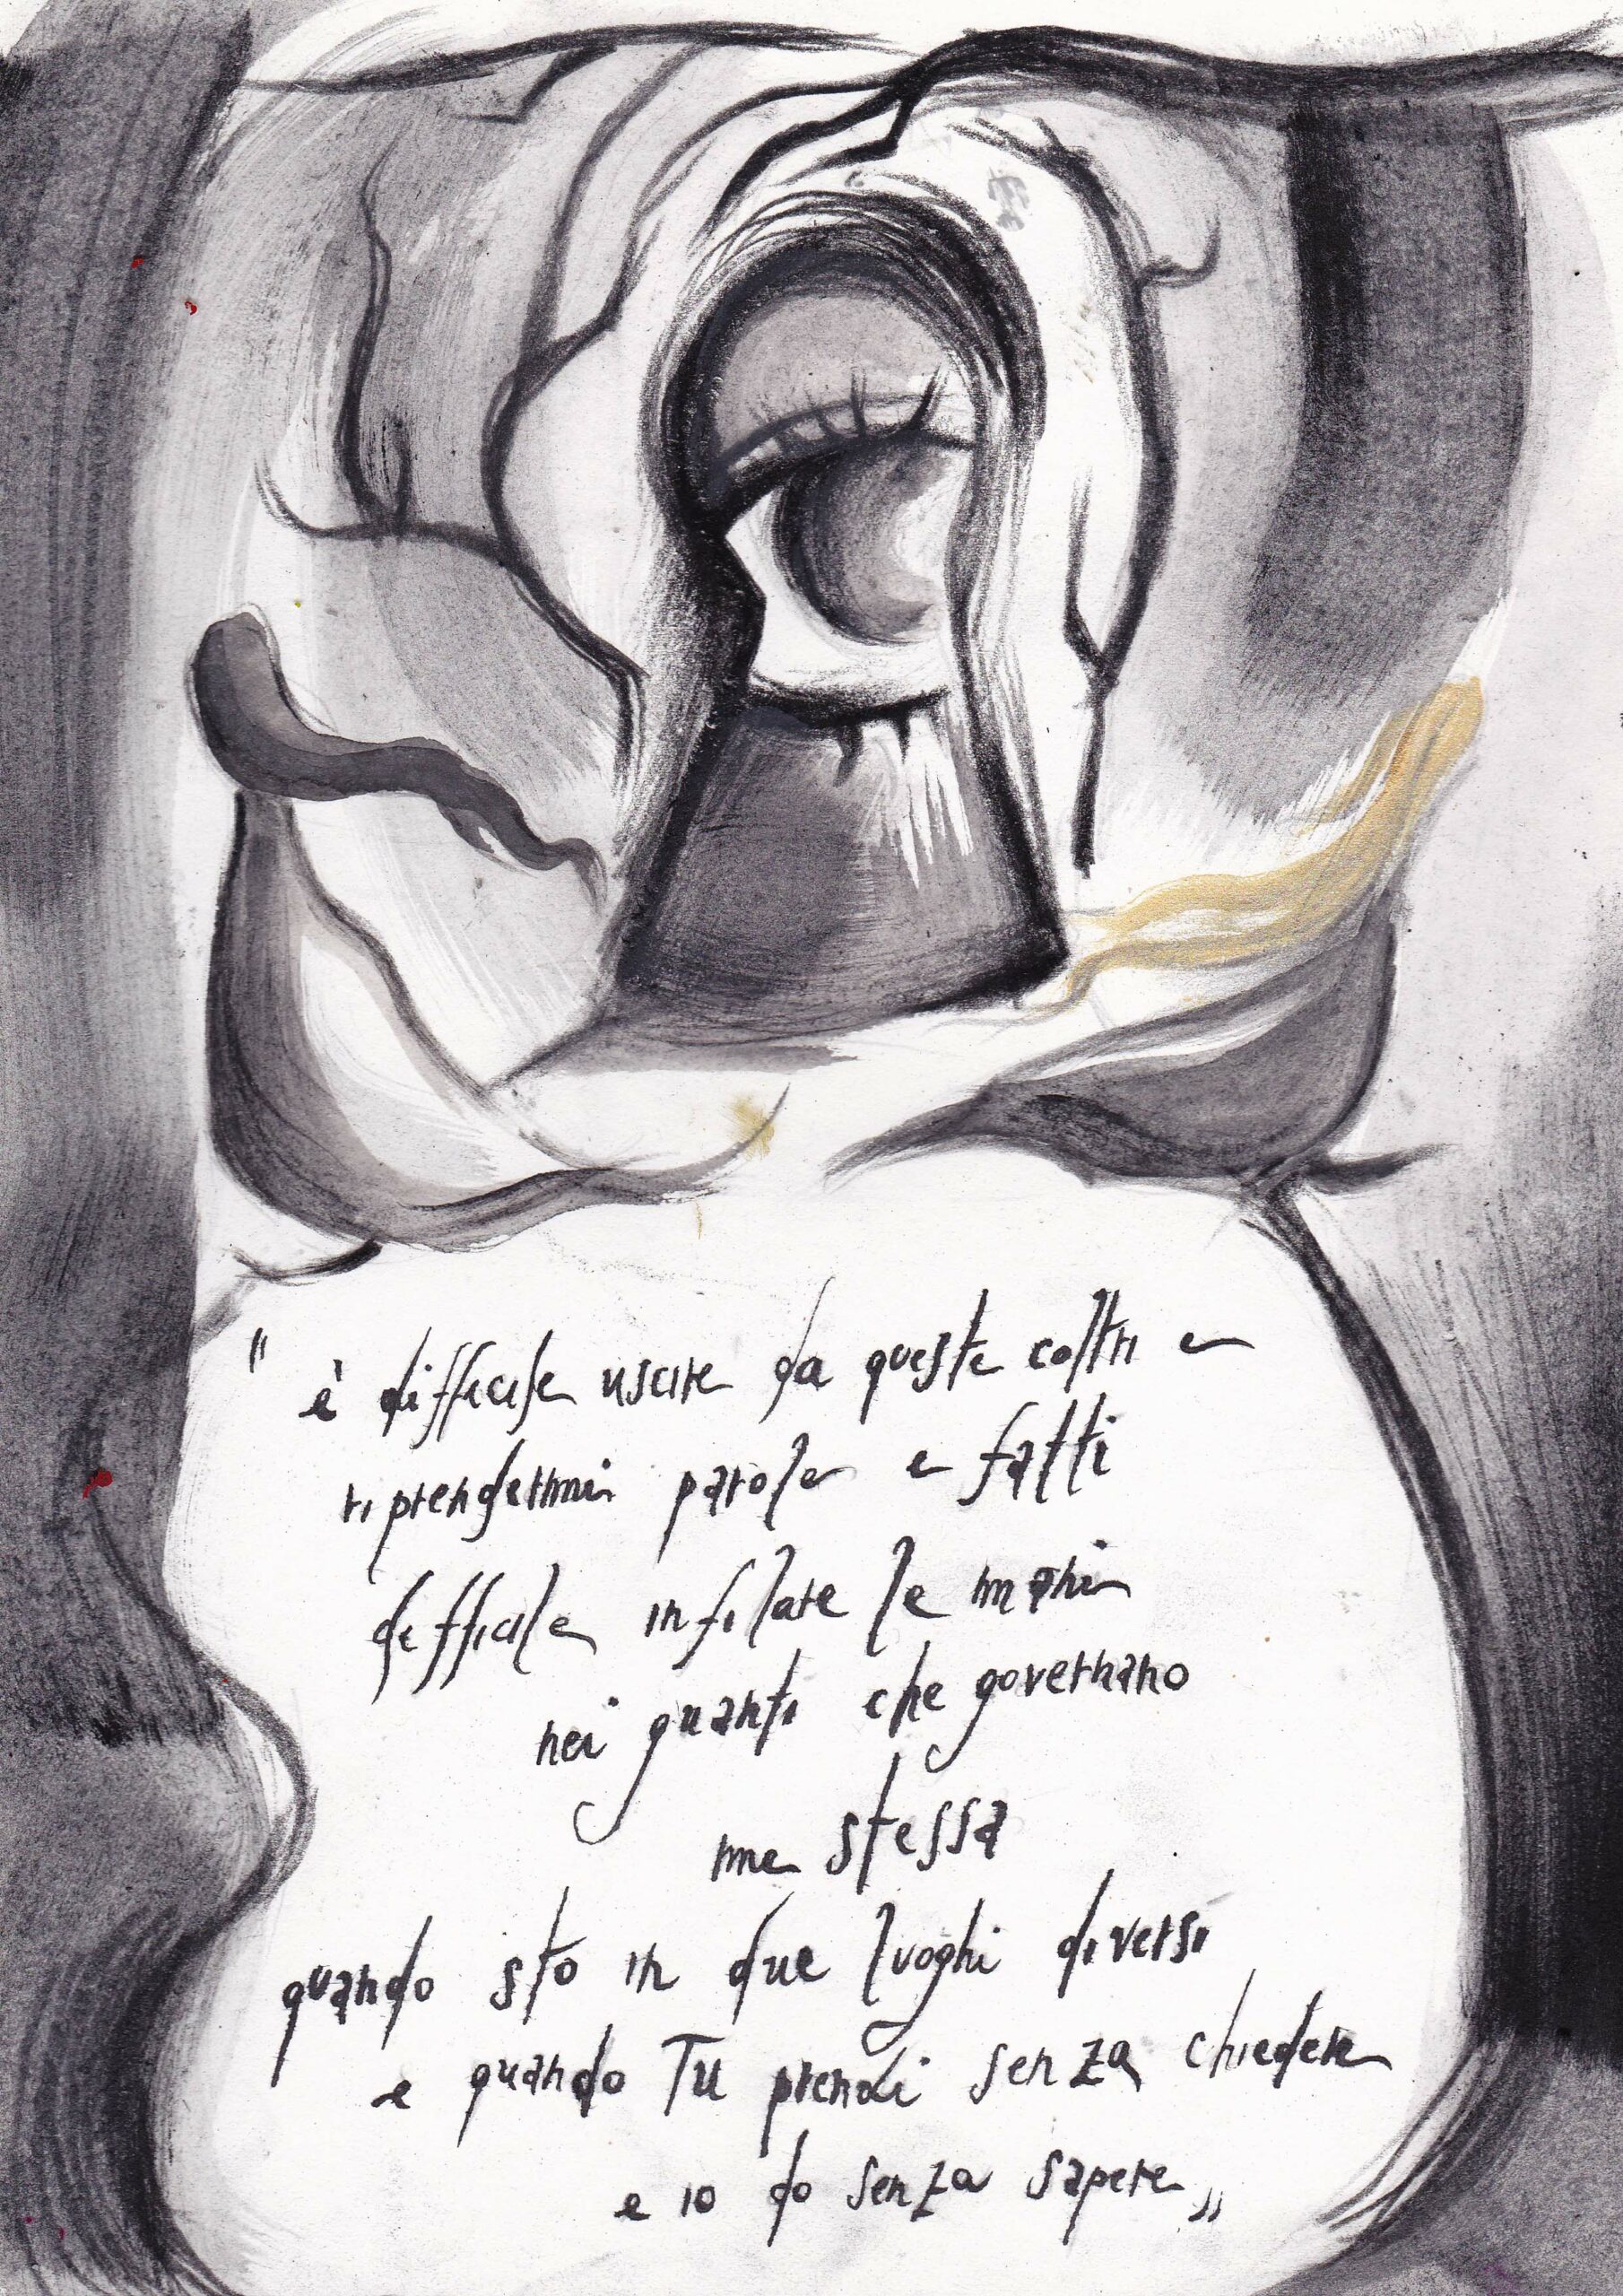 " è difficile uscire da queste coltri e
riprendermi parole e fatti
difficile infilare le mani
nei guanti che governano
me stessa
quando sto in due luoghi diversi
e quando Tu prendi senza chiedere
e io do senza sapere „